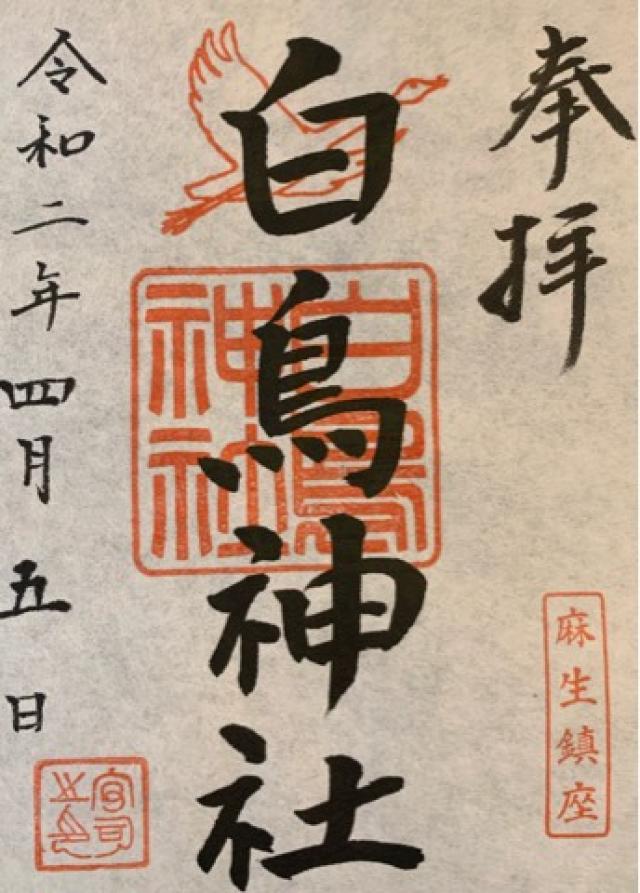 奉拝
白鳥神社
白鳥
神社
麻生鎮座
令和二年四月五日
宮司
之印